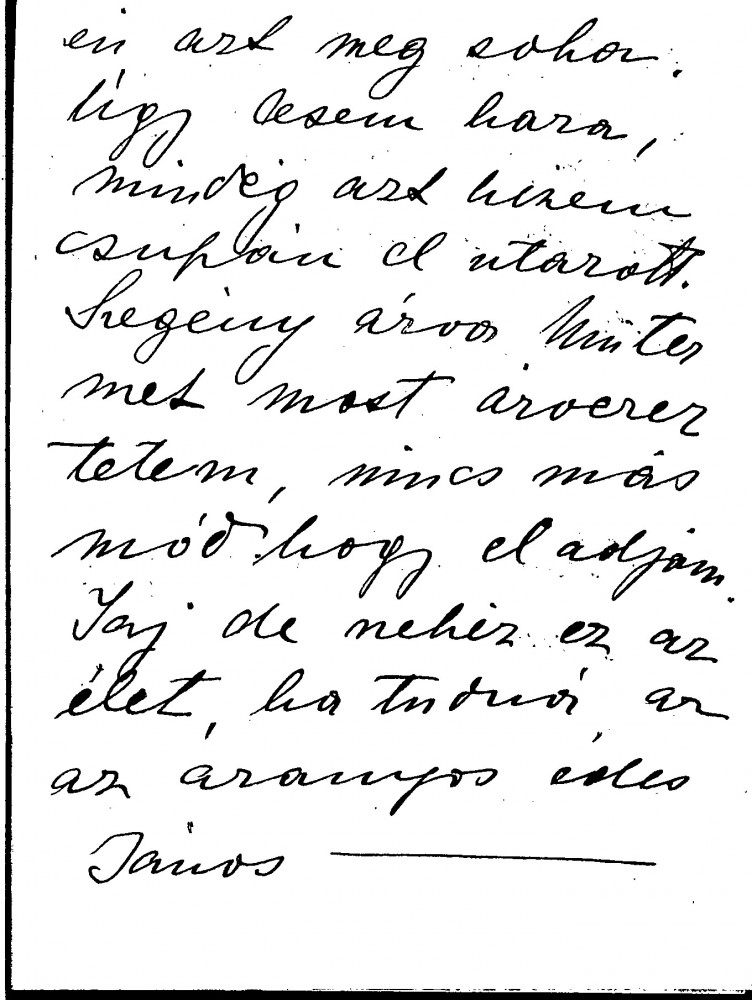 én azt meg soha.
Úgy lesem haza,
mindég azt hiszem
csupán el utazott.
Szegény árva
met most árverez
tetem, nincs más
mód hogy el adjam.
Jaj de nehéz ez az
élet, ha tudná az
az áranyos édes
János